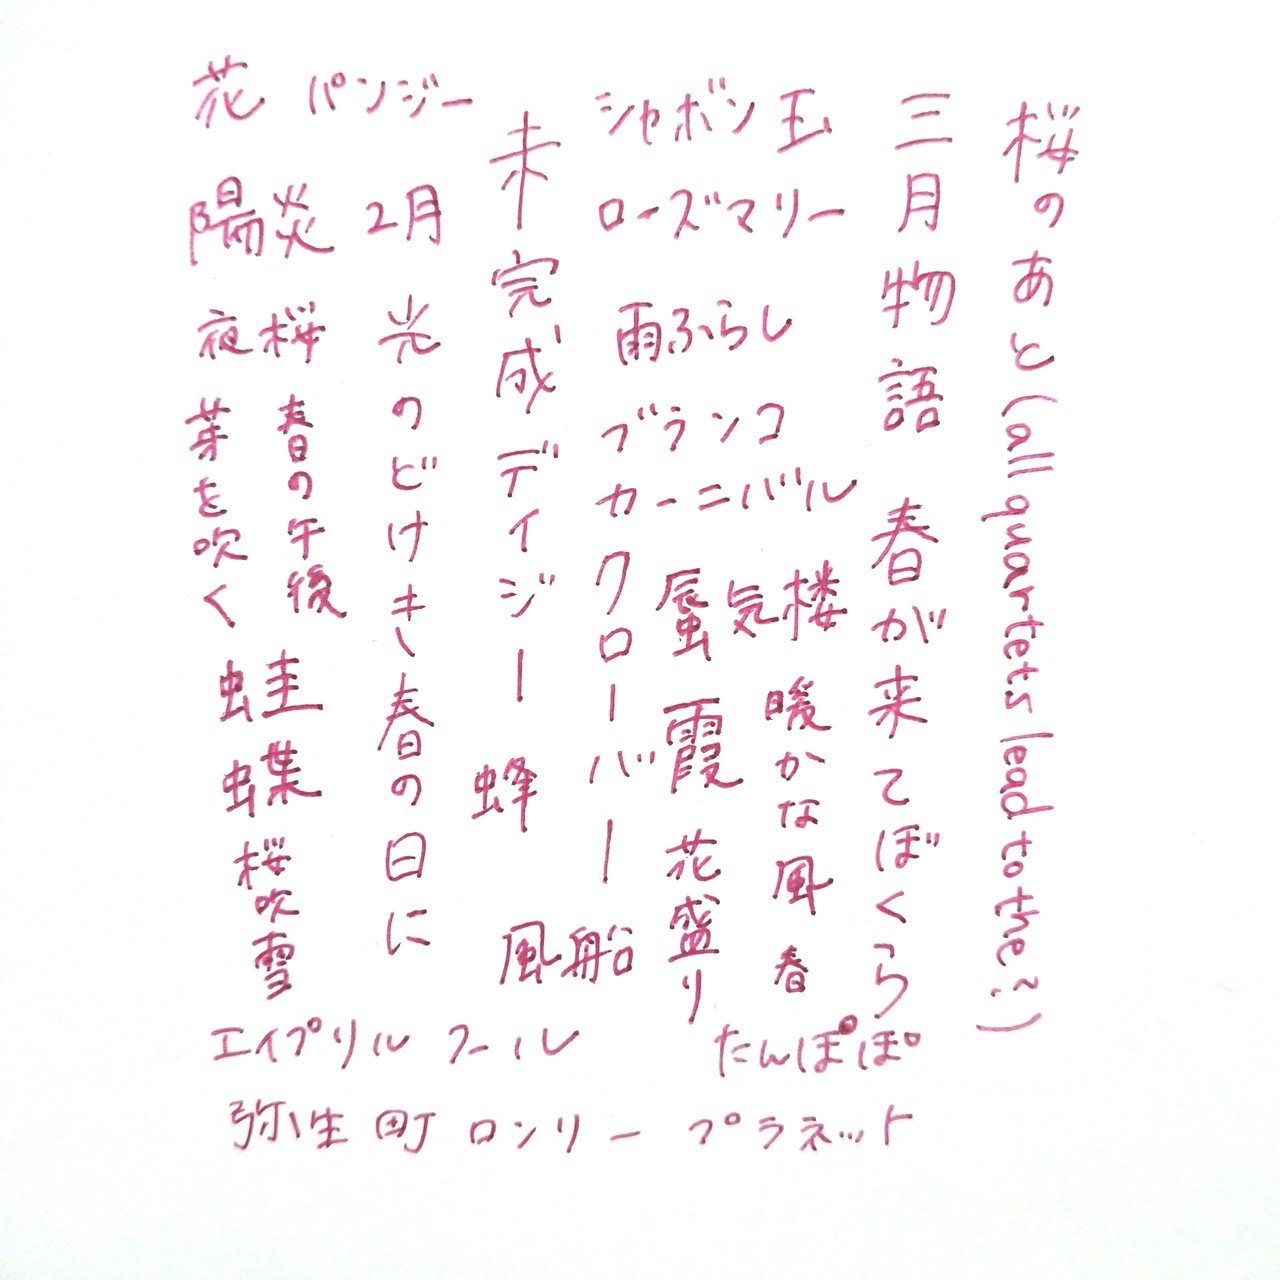 桜のあと(all quartets lead to the?)
三月物語
春が来てぼくら
シャボン玉
ローズマリー
雨ふらし
ブランコ
カーニバル
蜃気楼
暖かな風
春
霞
花盛り
クローバー
たんぽぽ
未完成デイジー
蜂
風船
花
パンジー
陽炎
2月
光のどけき春の日に
夜桜
春の午後
芽を吹く
蛙
蝶
桜吹雪
エイプリルフール
弥生町ロンリープラネット